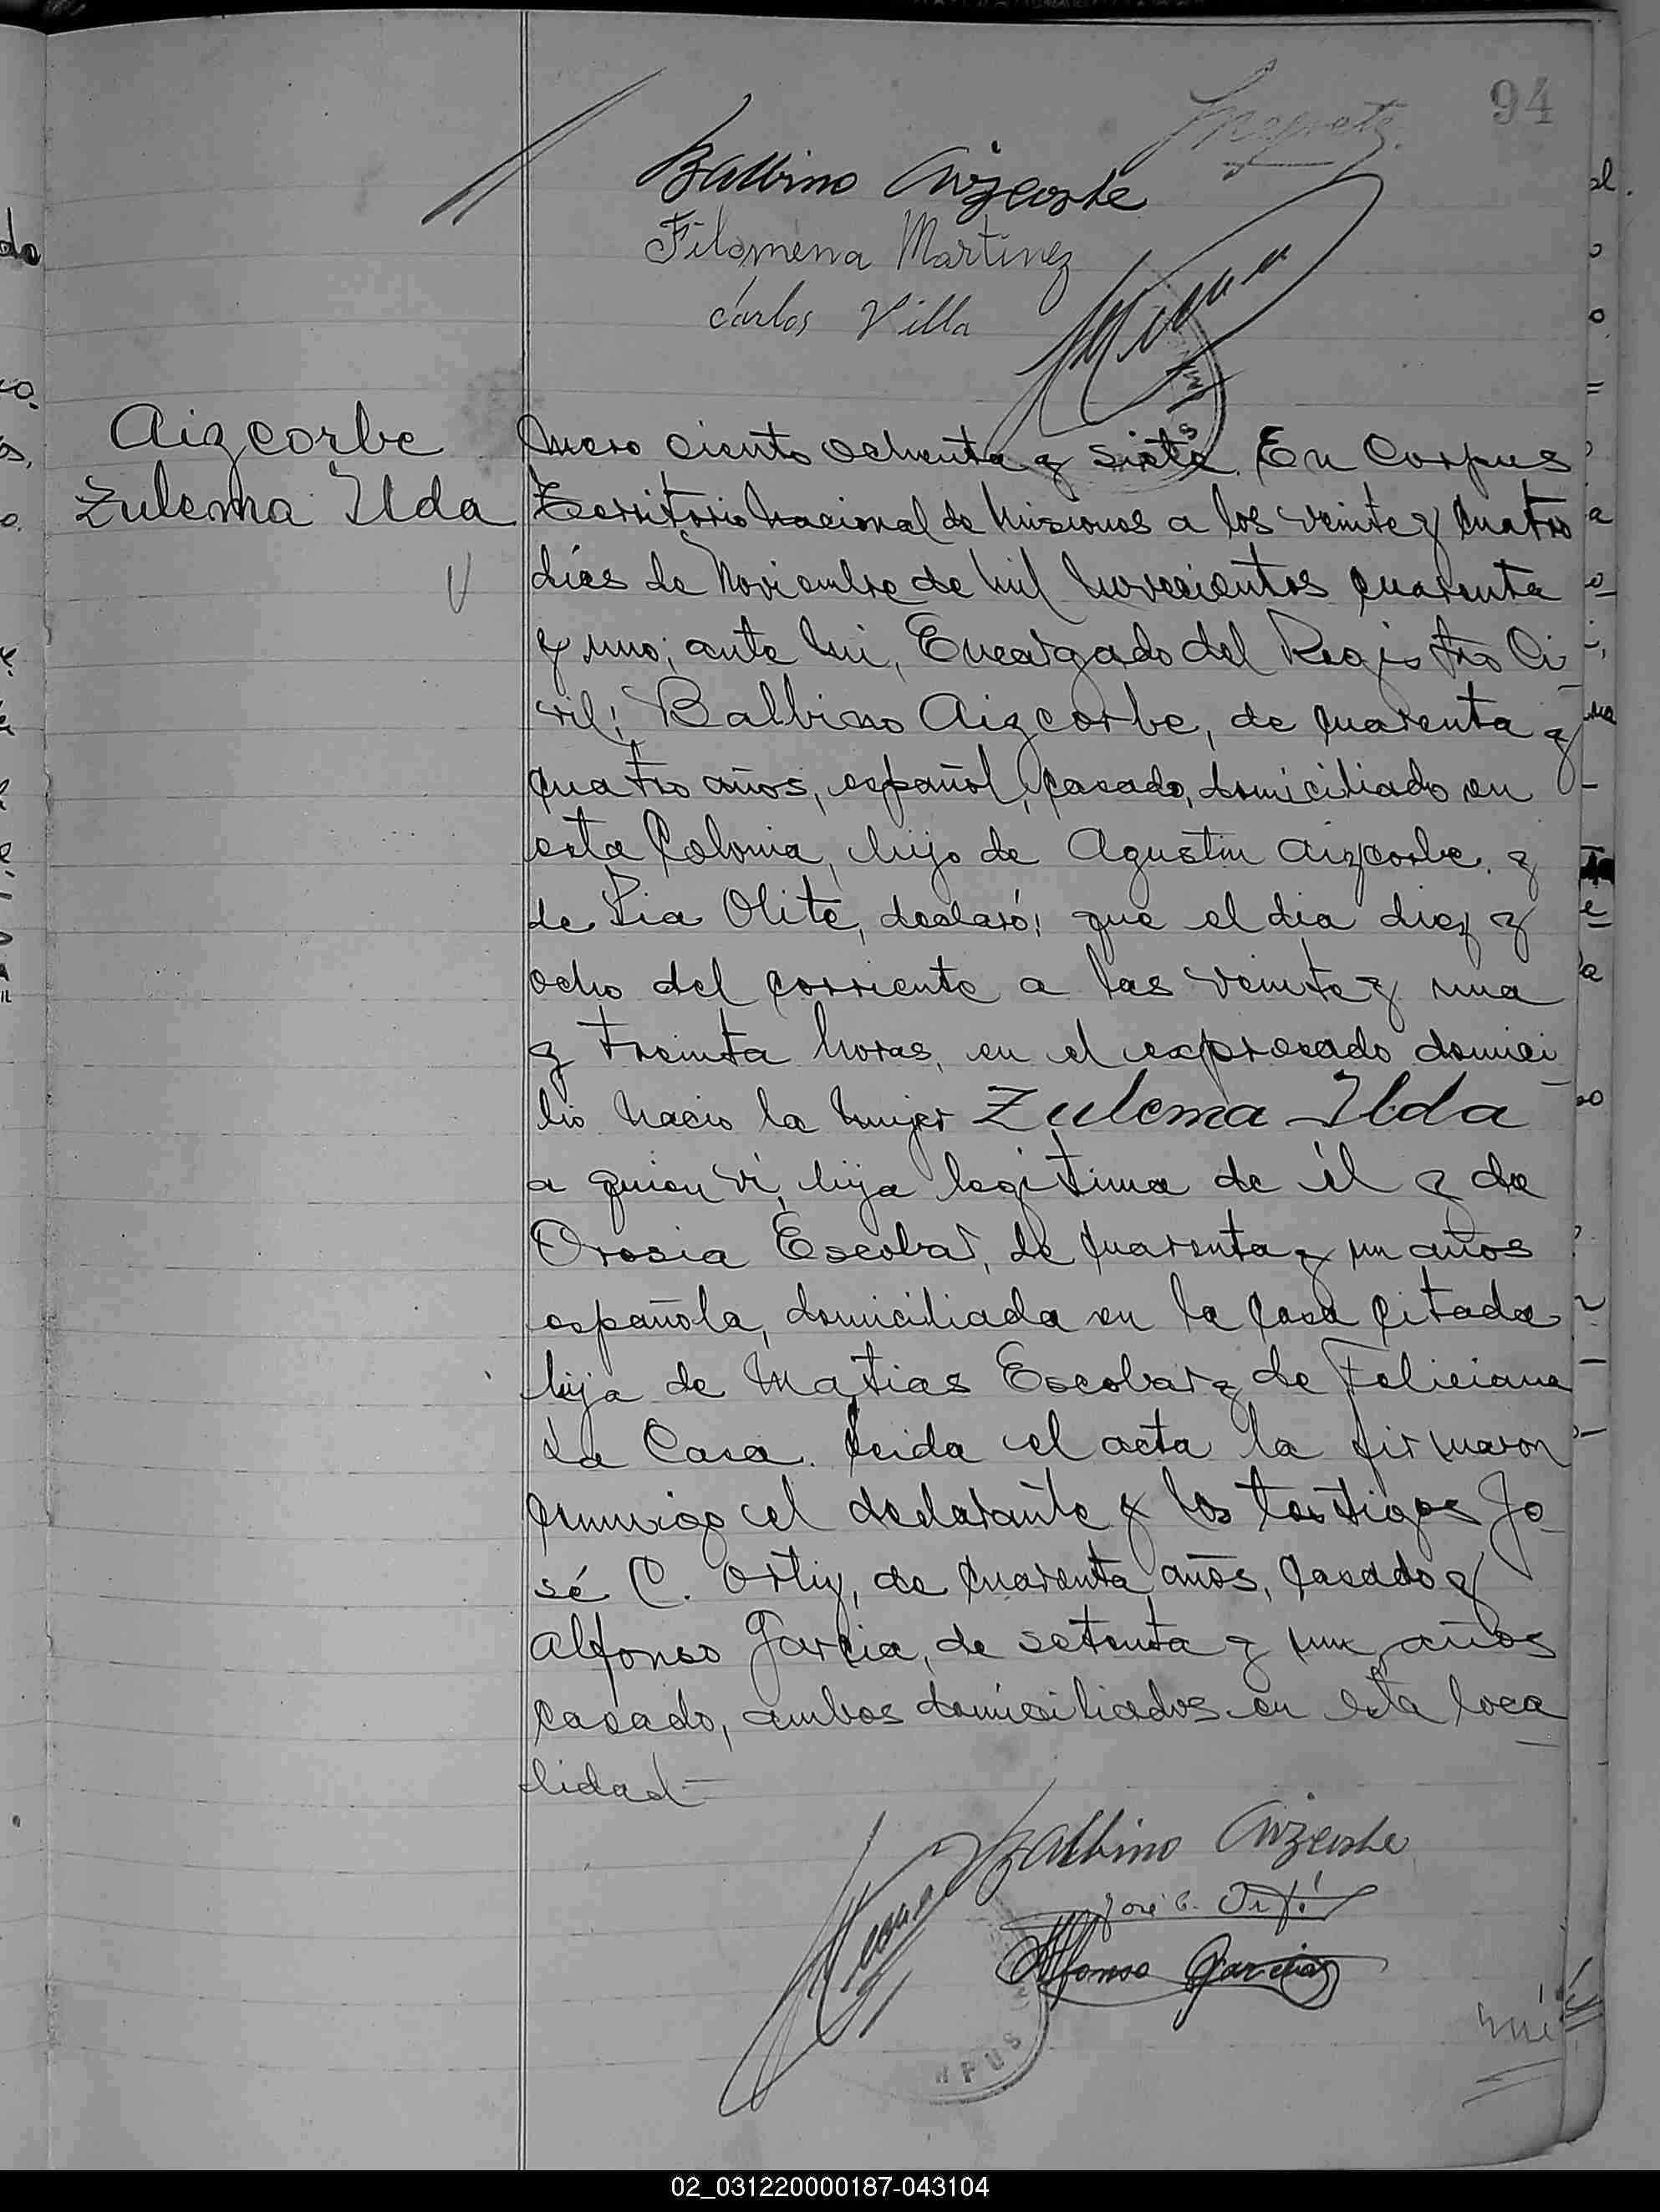 94
Balbino Aizcorbe
Filomena Martinez
Carlos Villa
Aizcorbe
Zulema Ilda
Número ciento ochenta y siete. En Corpus
Territorio Nacional de Misiones a los veinte y cuatro
días de Noviembre de mil novecientos cuarenta
y uno; ante mi, Encargado del Registro Ci
vil; Balbino Aizcorbe, de cuarenta y
cuatro años, español, casado, domiciliado en
esta Colonia, hijo de Agustin Aizcorbe y
de Pia Olite, declaró; que el dia diez y
ocho del corriente a las veinte y una
y treinta horas, en el expresado domici
lio nacio la mujer Zulema Ilda
a quien vi, hija legitima de él y de
Orosia Escobar, de cuarenta y un años
española, domiciliada en la casa citada
hija de Matias Escobar y de Feliciana
La Casa. Leida el acta la firmaron
conmigo el declarante y los testigos Jo
sé C. Ortiz, de cuarenta años, casado y
Alfonso Garcia, de setenta y un años
casado, ambos domiciliados en esta loca
lidad
Balbino Aizcorbe
José C. Orti
Alfonso Garcia
02_031220000187-043104